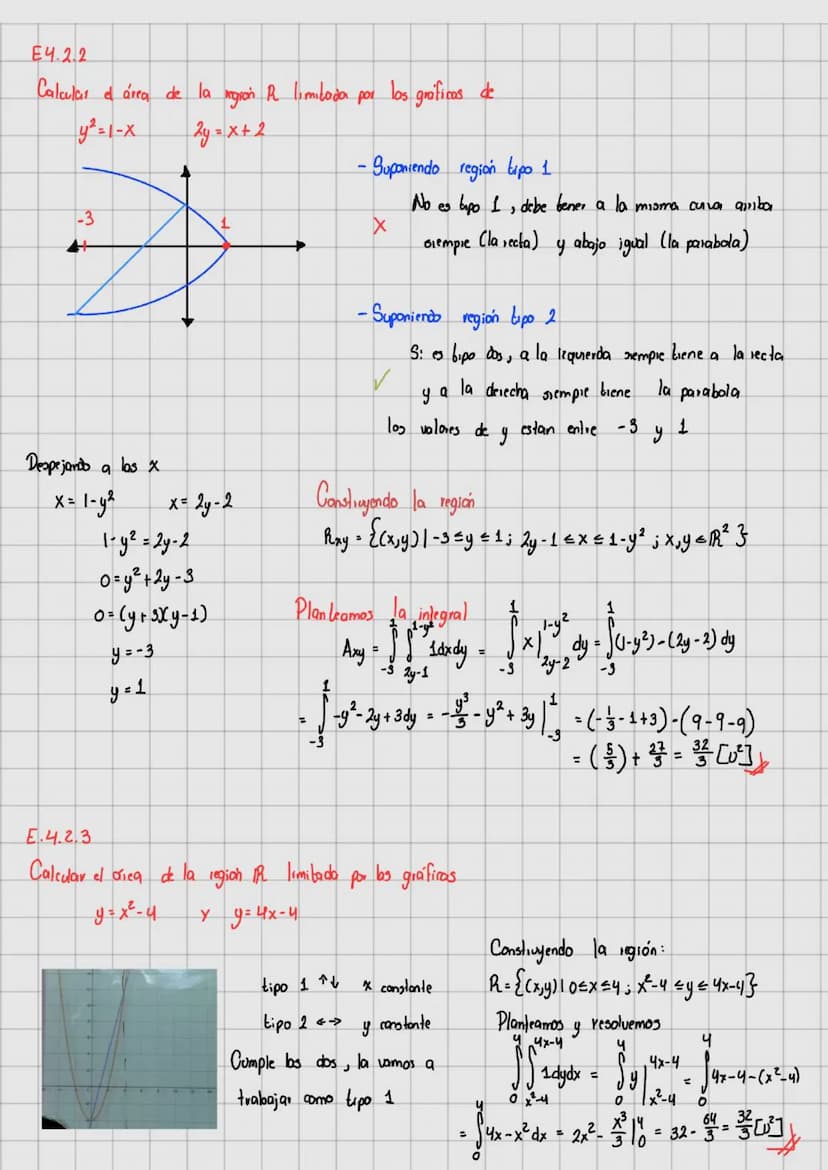 E4.2.2
Calcular el área de la región R limitada por los gráficos de
y²=1-x 2y=x+2
-3
1
- Suponiendo región tipo 1
No es tipo 1, debe tener a la misma curva arriba
X
siempre (la recta) y abajo igual (la parabola)
- Suponiendo región tipo 2
Si es tipo dos, a la izquierda siempre tiene a la recta
✓
y a la derecha siempre tiene la parabola
los valores de y estan entre -3 y 1
Despejando a las x
x = 1-y² x = 2y-2
1-y² = 2y-2
0 = y²+2y-3
0 = (y+3)(y-1)
y = -3
y = 1
Construyendo la región
Rxy = {(x,y) | -3≤y≤1; 2y-1≤x≤1-y²; x,y∈ℝ²}
Planteamos la integral
Axy = ∫_{-3}^{1} ∫_{2y-1}^{1-y²} 1dxdy = ∫_{-3}^{1} x|_{2y-2}^{1-y²} dy = ∫_{-3}^{1} (1-y²)-(2y-2) dy
= ∫_{-3}^{1} -y²-2y+3dy = -y³/3 - y² + 3y |_{-3}^{1} = (-1/3-1+3)-(9-9-9)
= (5/3) + 27/3 = 32/3 [U²]
E.4.2.3
Calcular el área de la region R limitada por las gráficas
y = x²-4 y y = 4x-4
tipo 1 ↑↓ x constante
tipo 2 ↔ y constante
Cumple las dos, la vamos a
trabajar como tipo 1
Construyendo la región:
R = {(x,y) | 0≤x≤4; x²-4≤y≤4x-4}
Planteamos y resolvemos
∫_{0}^{4} ∫_{x²-4}^{4x-4} 1dydx = ∫_{0}^{4} y|_{x²-4}^{4x-4} = ∫_{0}^{4} 4x-4-(x²-4)
= ∫_{0}^{4} 4x-x² dx = 2x² - x³/3 |_{0}^{4} = 32 - 64/3 = 32/3 [U²]